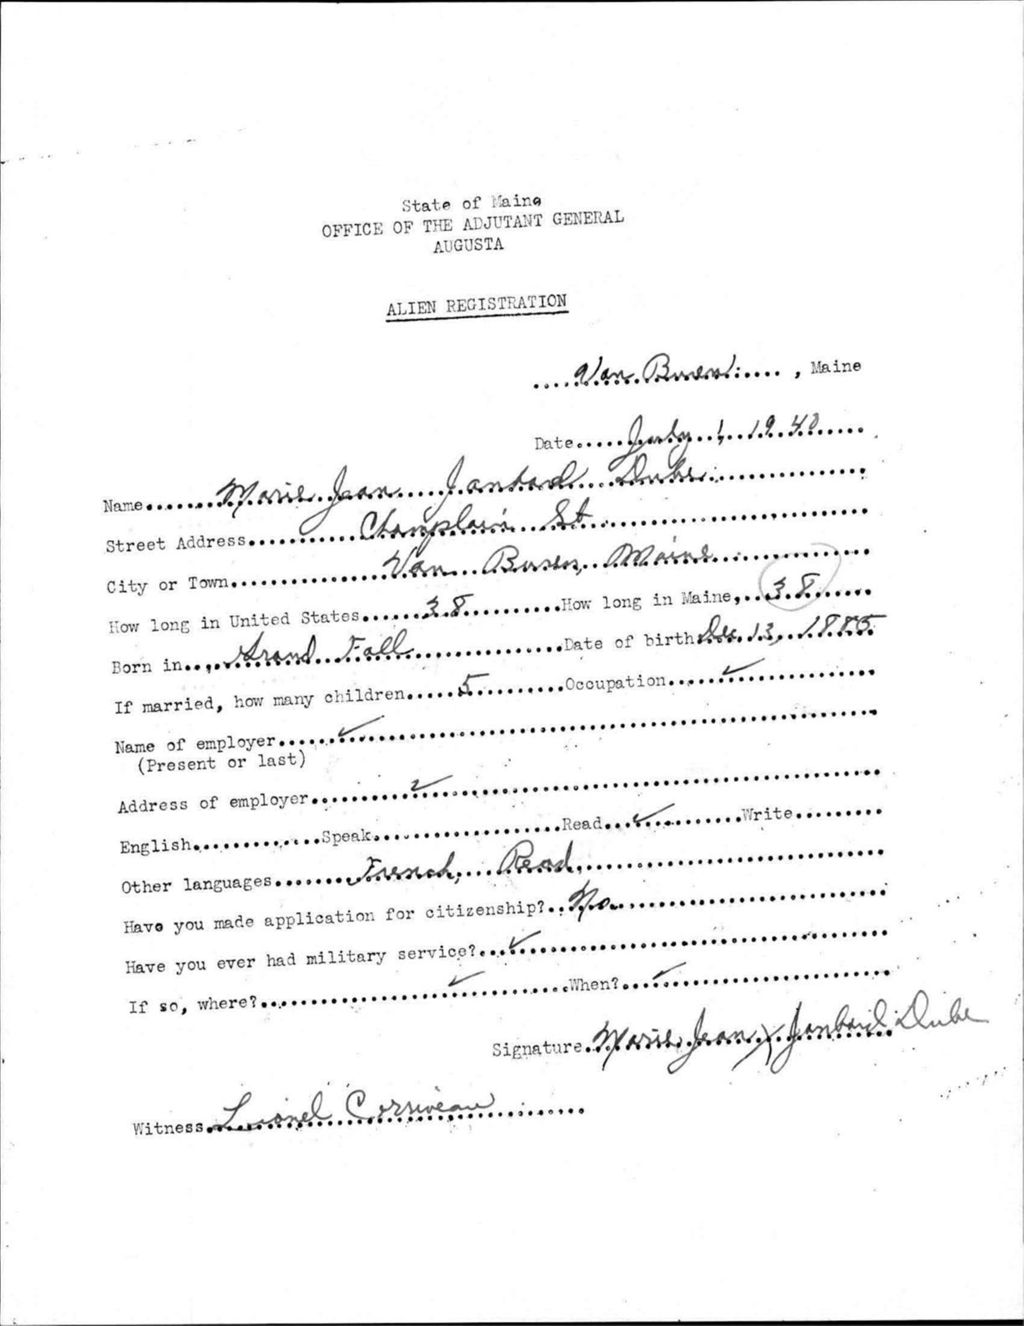 State of Maine
OFFICE OF THE ADJUTANT GENERAL
AUGUSTA
ALIEN REGISTRATION
Van Buren, Maine
Date July 1, 1940
Name Marie Jean Dube
Street Address Champlain St
City or Town Van Buren, Maine
How long in United States 38 How long in Maine, 38
Born in Grand Fall Date of birth Dec 13, 1885
If married, how many children 5 Occupation ✓
Name of employer ✓
(Present or last)
Address of employer ✓
English Speak Read ✓ Write
Other languages French, Read
Have you made application for citizenship? No
Have you ever had military service? ✓
If so, where? ✓ When? ✓
Signature Marie Jean X Dube
Witness Lionel Corriveau